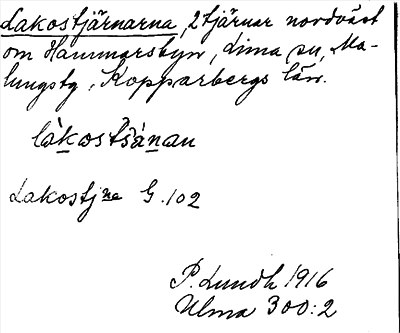 Lakostjärnarna, 2 tjärnar nordväst
om Hammarsbyn, Lima sn, Ma-
lungstg, Kopparbergs län.
làkostšánan
Lakostjna G. 102
P. Lundh 1916
Ulma 300:2